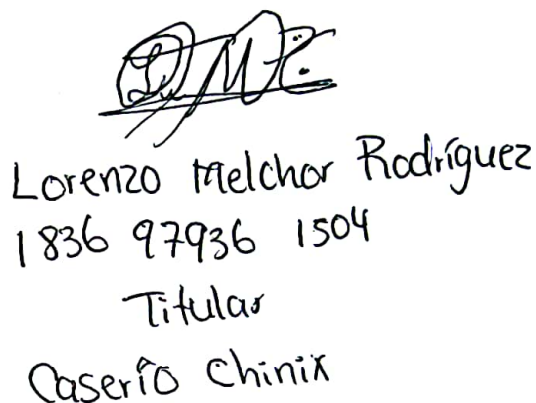 Lorenzo Melchor Rodríguez
1836 97936 1504
Titular
Caserío Chinix